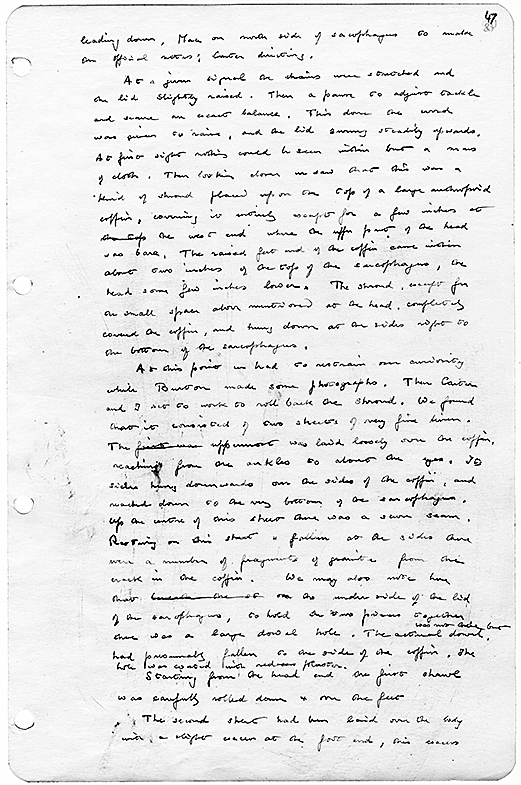 47
leading down, Mace on north side of sarcophagus to make
an official notes; Carter directing.
At a given signal the chains were stretched and
the lid slightly raised. Then a pause to adjust tackle
and secure an exact balance. This done the word
was given to raise, and the lid swung steadily upwards.
At first sight nothing could be seen within but a mass
of cloth. Then looking closer we saw that this was a
kind of shroud placed upon the top of a large anthropoid
coffin, covering it entirely except for a few inches at
the west end where the upper part of the head
was bare. The raised foot end of the coffin came within
about two inches of the top of the sarcophagus, the
head some few inches lower. The shroud, except for
the small space above mentioned at the head, completely
covered the coffin, and hung down at the sides right to
the bottom of the sarcophagus.
At this point we had to restrain our curiosity
while Burton made some photographs. Then Carter
and I set to work to roll back the shroud. We found
that it consisted of two sheets of very fine linen.
The first was uppermost was laid loosely over the coffin,
reaching from the ankles to about the eyes. Its
sides hung downwards over the sides of the coffin, and
reached down to the very bottom of the sarcophagus.
Up the centre of this sheet there was a sewn seam.
Resting on this sheet & fallen at the sides there
were a number of fragments of granite from the
crack in the coffin. We may also note here
that on the under side of the lid
of the sarcophagus, to hold the two pieces together
there was a large dowel hole. The actual dowel,
was not there, but
had presumably fallen to the sides of the coffin. The
hole was coated with red plaster.
Starting from the head end the first shawl
was carefully rolled down & over the feet
The second sheet had been laid over the body
with a slight excess at the foot end, this excess